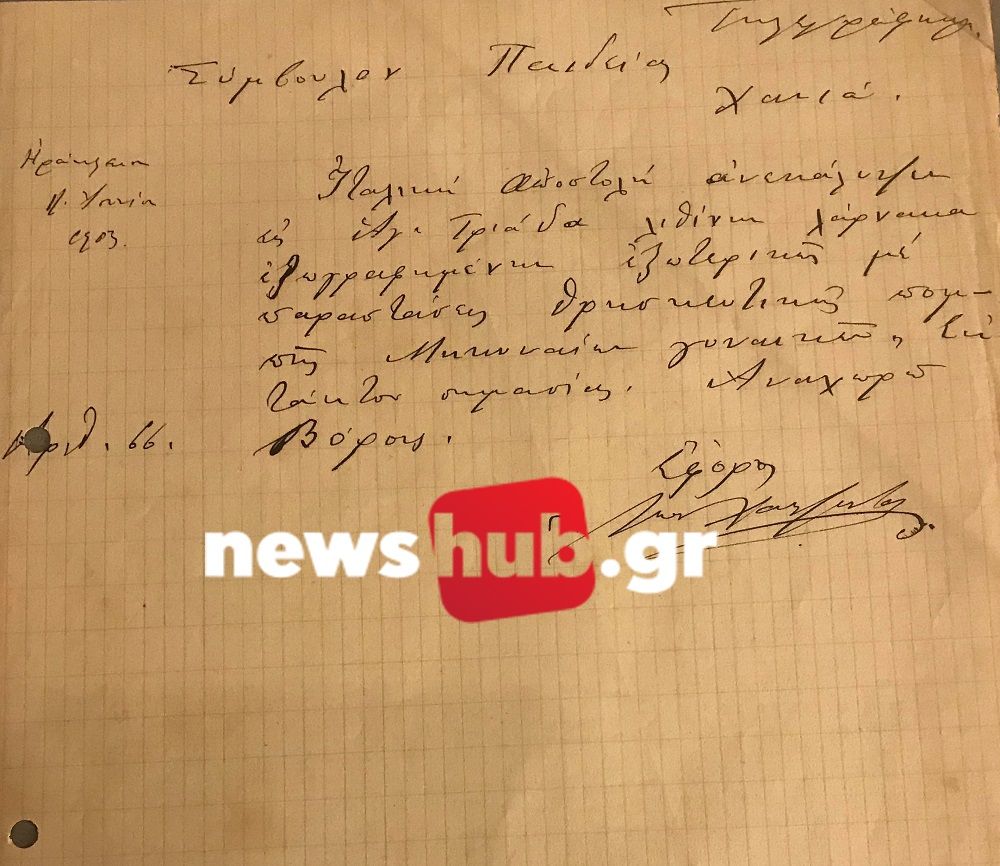 Τηλεγράφημα.
Σύμβουλον Παιδείας
Χανιά.
Ἡράκλειον
Ἰουνίου
1903.
Ἰταλικὴ ἀποστολὴ ἀνεκάλυψεν
εἰς Ἁγ. Τριάδα λιθίνην λάρνακα
ἐζωγραφημένην ἐξωτερικῶς μὲ
παραστάσεις θρησκευτικῆς πομ-
πῆς Μυκηναίων γυναικῶν, ἐκ
τάκτου σημασίας. Ἀναχωρῶ
Βόρους.
Ἀριθ. 66.
Ἔφορος
newshub.gr